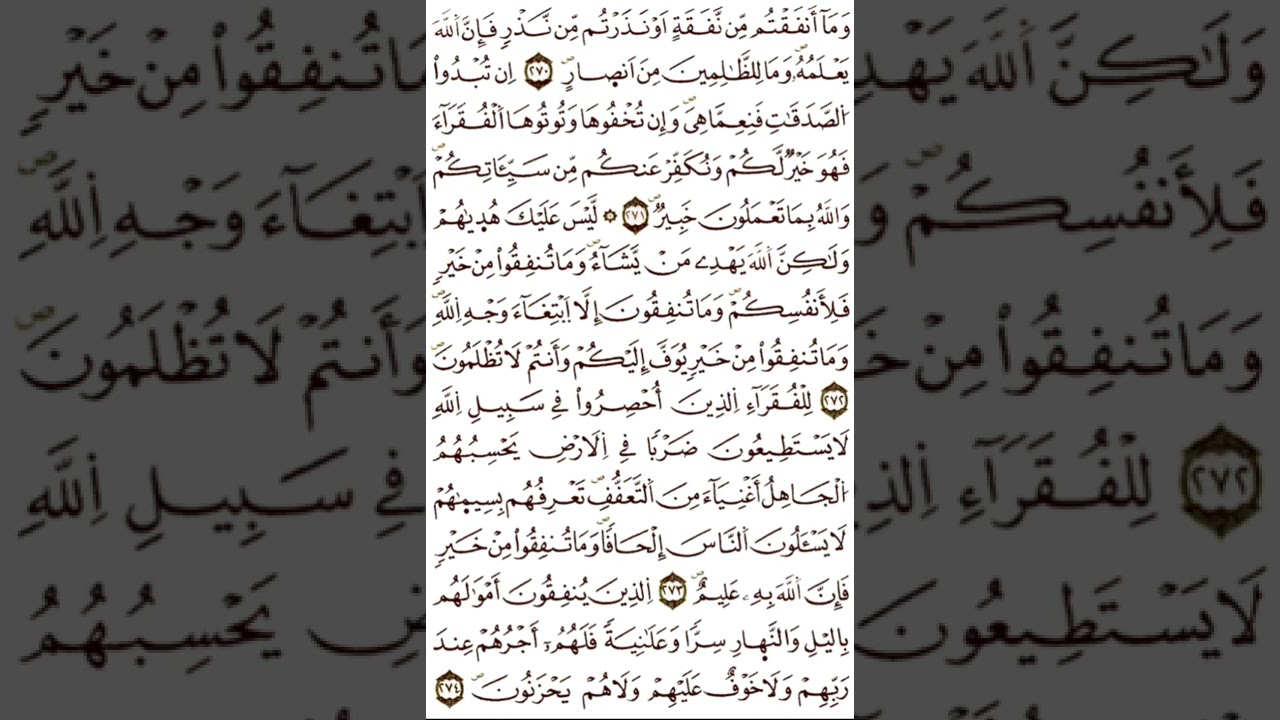 وَمَآ أَنفَقْتُم مِّن نَّفَقَةٍ اَوْ نَذَرْتُم مِّن نَّذْرٖ فَإِنَّ اَ۬للَّهَ
يَعْلَمُهُۥۖ وَمَا لِلظَّٰلِمِينَ مِنَ اَنصٖارٍۖ ٢٧٠ اِن تُبْدُواْ
اُ۬لصَّدَقَٰتِ فَنِعِمَّا هِيَۖ وَإِن تُخْفُوهَا وَتُوتُوهَا اَ۬لْفُقَرَآءَ
فَهُوَ خَيْرٞ لَّكُمْ وَنُكَفِّرْ عَنكُم مِّن سَيِّـَٔاتِكُمْۖ
وَاللَّهُ بِمَا تَعْمَلُونَ خَبِيرٞۖ ٢٧١ ۞ لَّيْسَ عَلَيْكَ هُد۪يٰهُمْ
وَلَٰكِنَّ اَ۬للَّهَ يَهْدِے مَنْ يَّشَآءُۖ وَمَا تُنفِقُواْ مِنْ خَيْرٖ
فَلِأَنفُسِكُمْۖ وَمَا تُنفِقُونَ إِلَّا اَ۪بْتِغَآءَ وَجْهِ اِ۬للَّهِۖ
وَمَا تُنفِقُواْ مِنْ خَيْرٖ يُوَفَّ إِلَيْكُمْ وَأَنتُمْ لَا تُظْلَمُونَۖ
٢٧٢ لِلْفُقَرَآءِ اِ۬لذِينَ أُحْصِرُواْ فِے سَبِيلِ اِ۬للَّهِ
لَا يَسْتَطِيعُونَ ضَرْباٗ فِے اِ۬لَارْضِ يَحْسِبُهُمُ
اُ۬لْجَاهِلُ أَغْنِيَآءَ مِنَ اَ۬لتَّعَفُّفِۖ تَعْرِفُهُم بِسِيم۪يٰهُمْ
لَا يَسْـَٔلُونَ اَ۬لنَّاسَ إِلْحَافاٗۖ وَمَا تُنفِقُواْ مِنْ خَيْرٖ
فَإِنَّ اَ۬للَّهَ بِهِۦ عَلِيمٌۖ ٢٧٣ اِ۬لذِينَ يُنفِقُونَ أَمْوَٰلَهُم
بِاليْلِ وَالنَّه۪ارِ سِرّاٗ وَعَلَٰنِيَةٗ فَلَهُمُۥٓ أَجْرُهُمْ عِندَ
رَبِّهِمْ وَلَا خَوْفٌ عَلَيْهِمْ وَلَا هُمْ يَحْزَنُونَۖ ٢٧٤